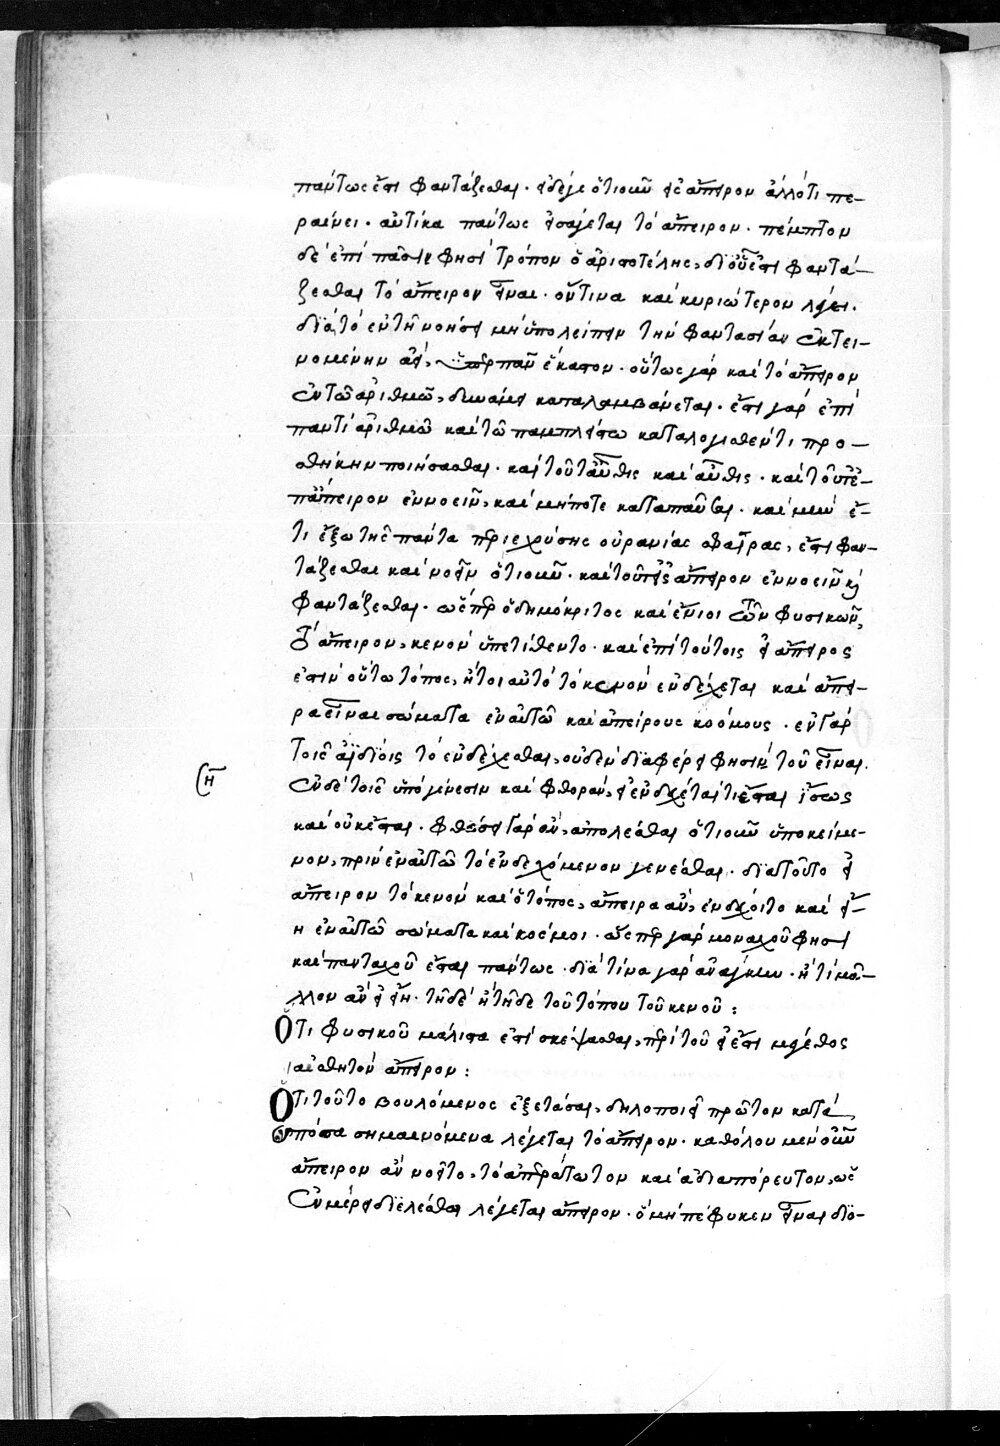 πάντως ἔστι φαντάζεσθαι. εἰ δέ γε ὁτιοῦν εἰς ἄπειρον ἀλλό τι πε-
ραίνει. αὐτίκα πάντως εἰσάγεται τὸ ἄπειρον. πέμπτον
δὲ ἐπὶ πᾶσι φησὶ τρόπον ὁ ἀριστοτέλης, δι' οὗ ἔστι φαντά-
ζεσθαι τὸ ἄπειρον εἶναι. ὅντινα καὶ κυριώτερον λέγει.
διὰ τὸ ἐν τῇ νοήσει μὴ ὑπολείπειν τὴν φαντασίαν ἐκτει-
νομένην ἀεὶ, ὑπὲρ πᾶν ἕκαστον. οὕτως γὰρ καὶ τὸ ἄπειρον
ἐν τῷ ἀριθμῷ, δυνάμει καταλαμβάνεται. ἔστι γὰρ ἐπὶ
παντὶ ἀριθμῷ καὶ τῷ παμπλείστῳ καταλογισθέντι προ-
σθήκην ποιήσασθαι. καὶ τοῦτ' αὖθις καὶ αὖθις. καὶ τοῦτ' ἐ-
π' ἄπειρον ἐννοεῖν, καὶ μήποτε καταπαῦσαι. καὶ μὴν ἔ-
τι ἔξω τῆς πάντα περιεχούσης οὐρανίας σφαίρας, ἔστι φαν-
τάζεσθαι καὶ νοεῖν ὁτιοῦν. καὶ τοῦτ' εἰς ἄπειρον ἐννοεῖν κ
φαντάζεσθαι. ὥσπερ ὁ δημόκριτος καὶ ἔνιοι τῶν φυσικῶν,
τὸ ἄπειρον, κενὸν ὑπετίθεντο. καὶ ἐπὶ τούτοις εἰ ἄπειρος
ἐστὶν οὕτω τόπος, ἤτοι αὐτὸ τὸ κενὸν ἐνδέχεται καὶ ἄπει-
ρα εἶναι σώματα ἐν αὐτῷ καὶ ἀπείρους κόσμους. ἐν γὰρ
τοῖς ἀϊδίοις τὸ ἐνδέχεσθαι, οὐδὲν διαφέρει φησὶν τοῦ εἶναι.
(ἢ
ἐν δὲ τοῖς ὑπὸ γένεσιν καὶ φθορὰν, εἰ ἐνδέχεταί τι ἔσται ἴσως
καὶ οὐκ ἔσται. φθάσει γὰρ ἂν, ἀπολέσθαι ὁτιοῦν ὑποκείμε-
νον, πρὶν ἐν αὐτῷ τὸ ἐνδεχόμενον γενέσθαι. διὰ τοῦτο εἰ
ἄπειρον τὸ κενὸν καὶ ὁ τόπος, ἄπειρα ἂν, ἐνδέχοιτο καὶ εἴ-
η ἐν αὐτῷ σώματα καὶ κόσμοι. ὥσπερ γὰρ μοναχοῦ φησὶ
καὶ πανταχοῦ ἔσται πάντως. διὰ τίνα γὰρ ἀνάγκην. ἢ τί μᾶ-
λλον ἂν εἴη. τῇδε ἢ τῇδε τοῦ τόπου τοῦ κενοῦ:
Ὅτι φυσικοῦ μάλιστα ἐστὶ σκέψασθαι, περὶ τοῦ εἰ ἔστι μέγεθος
αἰσθητὸν ἄπειρον:
Ὅτι τοῦτο βουλόμενος ἐξετάσαι, δηλοποιεῖ πρῶτον κατὰ
πόσα σημαινόμενα λέγεται τὸ ἄπειρον. καθόλου μὲν οὖν
ἄπειρον ἂν νοεῖτο, τὸ ἀπέρατωτον καὶ ἀδιαπόρευτον, ὡς
ἐν μέρει διελέσθαι λέγεται ἄπειρον. ὃ μὴ πέφυκεν εἶναι διο-